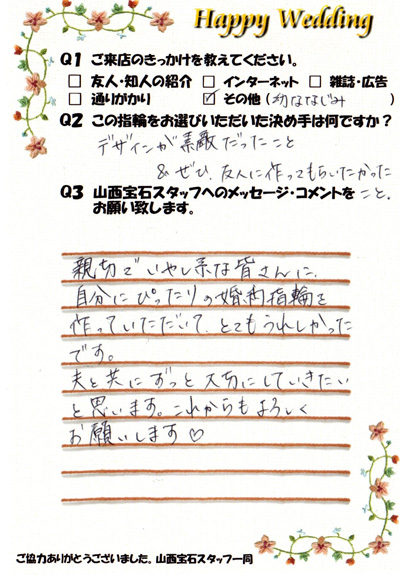 Happy Wedding
Q1 ご来店のきっかけを教えてください。
□ 友人・知人の紹介 □ インターネット □ 雑誌・広告
□ 通りがかり ☑ その他 (幼ななじみ )
Q2 この指輪をお選びいただいた決め手は何ですか?
デザインが素敵だったこと
& ぜひ、友人に作ってもらいたかった
こと。
Q3 山西宝石スタッフへのメッセージ・コメントを
お願い致します。
親切でいやし系な皆さんに、
自分にぴったりの婚約指輪を
作っていただいて、とてもうれしかった
です。
夫と共にずっと大切にしていきたい
と思います。これからもよろしく
お願いします♡
ご協力ありがとうございました。山西宝石スタッフ一同